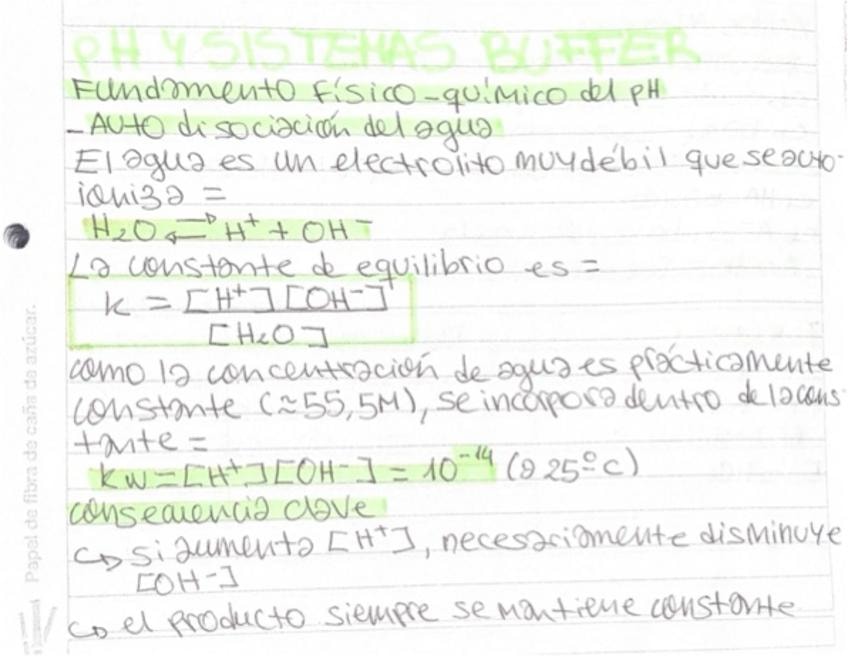 PH Y SISTEMAS BUFFER
Fundamento físico-químico del pH
- Auto disociación del agua
El agua es un electrolito muy débil que se auto-
ioniza =
H₂O ⇌ H⁺ + OH⁻
La constante de equilibrio es =
k = [H⁺][OH⁻]
[H₂O]
como la concentración de agua es prácticamente
constante (≈55,5M), se incorpora dentro de la cons
tante =
kw=[H⁺][OH⁻] = 10⁻¹⁴ (a 25ºC)
consecuencia clave
↪ si aumenta [H⁺], necesariamente disminuye
[OH⁻]
↪ el producto siempre se mantiene constante
Papel de fibra de caña de azúcar.